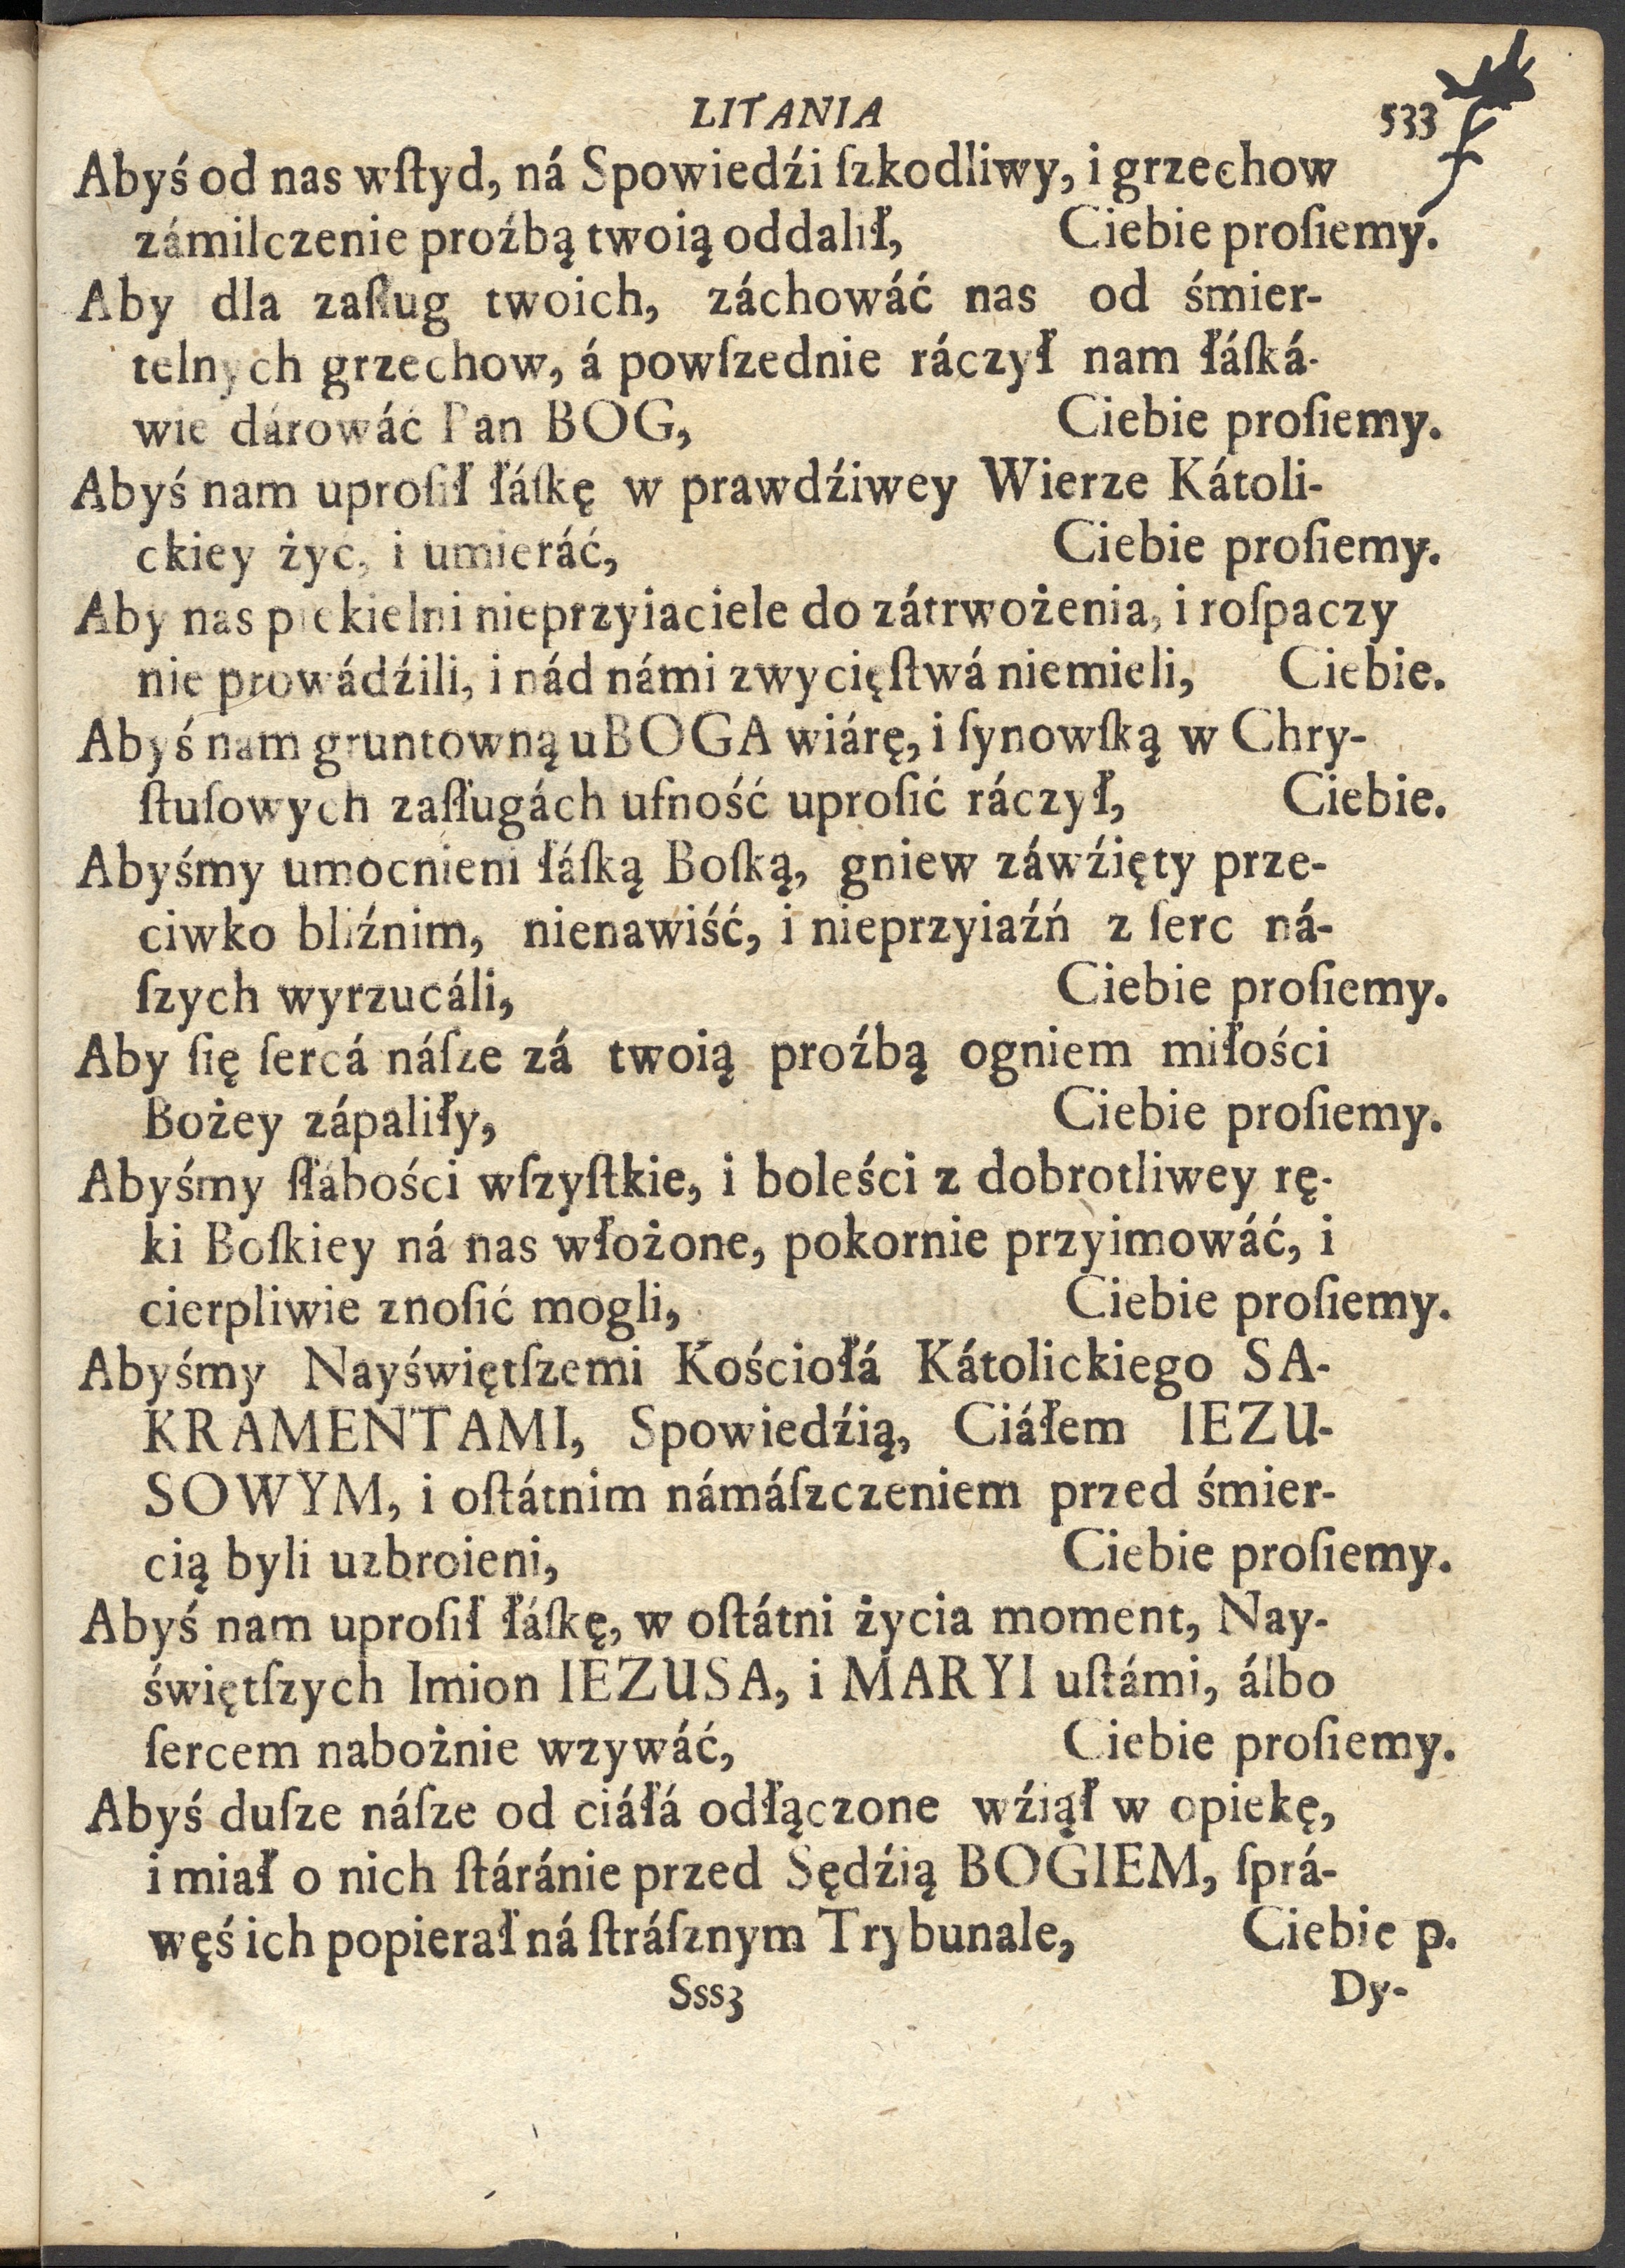 LITANIA 533
Abyś od nas wſtyd, ná Spowiedźi ſzkodliwy, i grzechow
zámilczenie proźbą twoią oddalił, Ciebie proſiemy.
Aby dla zaſług twoich, záchowáć nas od śmier-
telnych grzechow, á powſzednie ráczył nam łáſká-
wie dárowáć Pan BOG, Ciebie proſiemy.
Abyś nam uproſił łáſkę w prawdźiwey Wierze Kátoli-
ckiey życ, i umieráć, Ciebie proſiemy.
Aby nas piekielni nieprzyiaciele do zátrwożenia, i roſpaczy
nie prowádźili, i nád námi zwycięſtwá niemieli, Ciebie.
Abyś nam gruntowną u BOGA wiárę, i ſynowſką w Chry-
ſtuſowych zaſługách ufność uproſić ráczył, Ciebie.
Abyśmy umocnieni łáſką Boſką, gniew záwźięty prze-
ciwko bliźnim, nienawiść, i nieprzyiaźń z ſerc ná-
ſzych wyrzucáli, Ciebie proſiemy.
Aby ſię ſercá náſze zá twoią proźbą ogniem miłości
Bożey zápaliły, Ciebie proſiemy.
Abyśmy ſłábości wſzyſtkie, i boleści z dobrotliwey rę-
ki Boſkiey ná nas włożone, pokornie przyimowáć, i
cierpliwie znoſić mogli, Ciebie proſiemy.
Abyśmy Nayświętſzemi Kościołá Kátolickiego SA-
KRAMENTAMI, Spowiedźią, Ciáłem IEZU-
SOWYM, i oſtátnim námáſzczeniem przed śmier-
cią byli uzbroieni, Ciebie proſiemy.
Abyś nam uproſił łáſkę, w oſtátni życia moment, Nay-
świętſzych Imion IEZUSA, i MARYI uſtámi, álbo
ſercem nabożnie wzywáć, Ciebie proſiemy.
Abyś duſze náſze od ciáłá odłączone wźiął w opiekę,
i miał o nich ſtáránie przed Sędźią BOGIEM, ſprá-
węś ich popierał ná ſtráſznym Trybunale, Ciebie p.
Sss3 Dy-